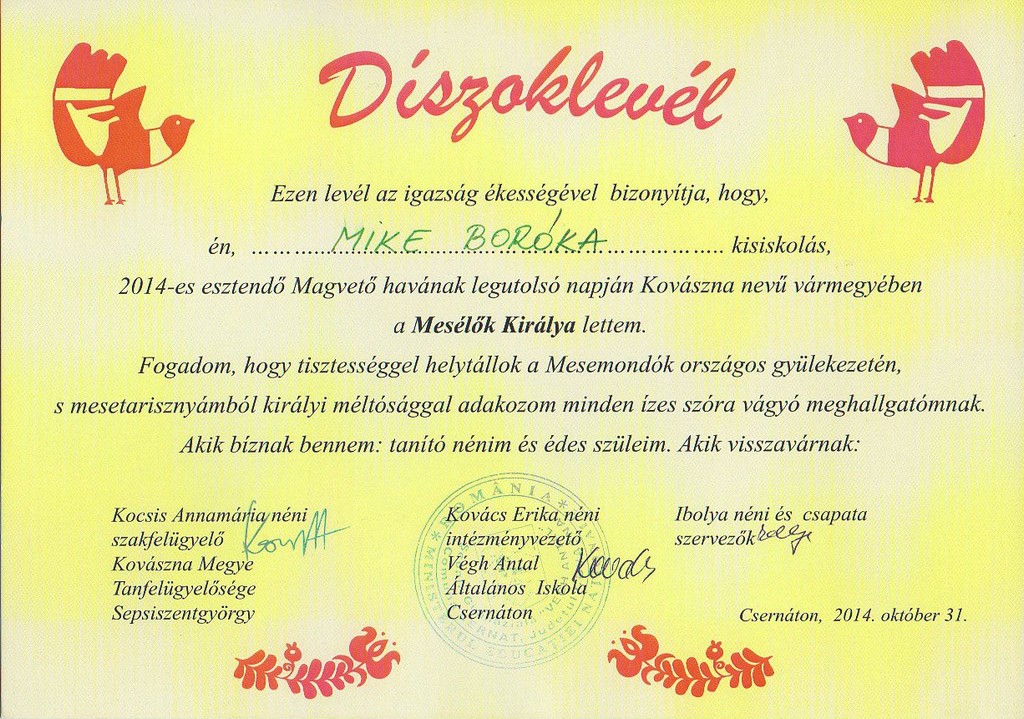 Díszoklevél
Ezen levél az igazság ékességével bizonyítja, hogy,
én, ……………MIKE BORÓKA………………….. kisiskolás,
2014-es esztendő Magvető havának legutolsó napján Kovászna nevű vármegyében
a Mesélők Királya lettem.
Fogadom, hogy tisztességgel helytállok a Mesemondók országos gyülekezetén,
s mesetarisznyámból királyi méltósággal adakozom minden ízes szóra vágyó meghallgatómnak.
Akik bíznak bennem: tanító nénim és édes szüleim. Akik visszavárnak:
Kocsis Annamária néni
szakfelügyelő
Kovászna Megye
Tanfelügyelősége
Sepsiszentgyörgy
Kovács Erika néni
intézményvezető
Végh Antal
Kovács
Általános Iskola
Csernáton
Ibolya néni és csapata
szervezők
Csernáton, 2014. október 31.
ROMÂNIA
MINISTERUL EDUCAȚIEI